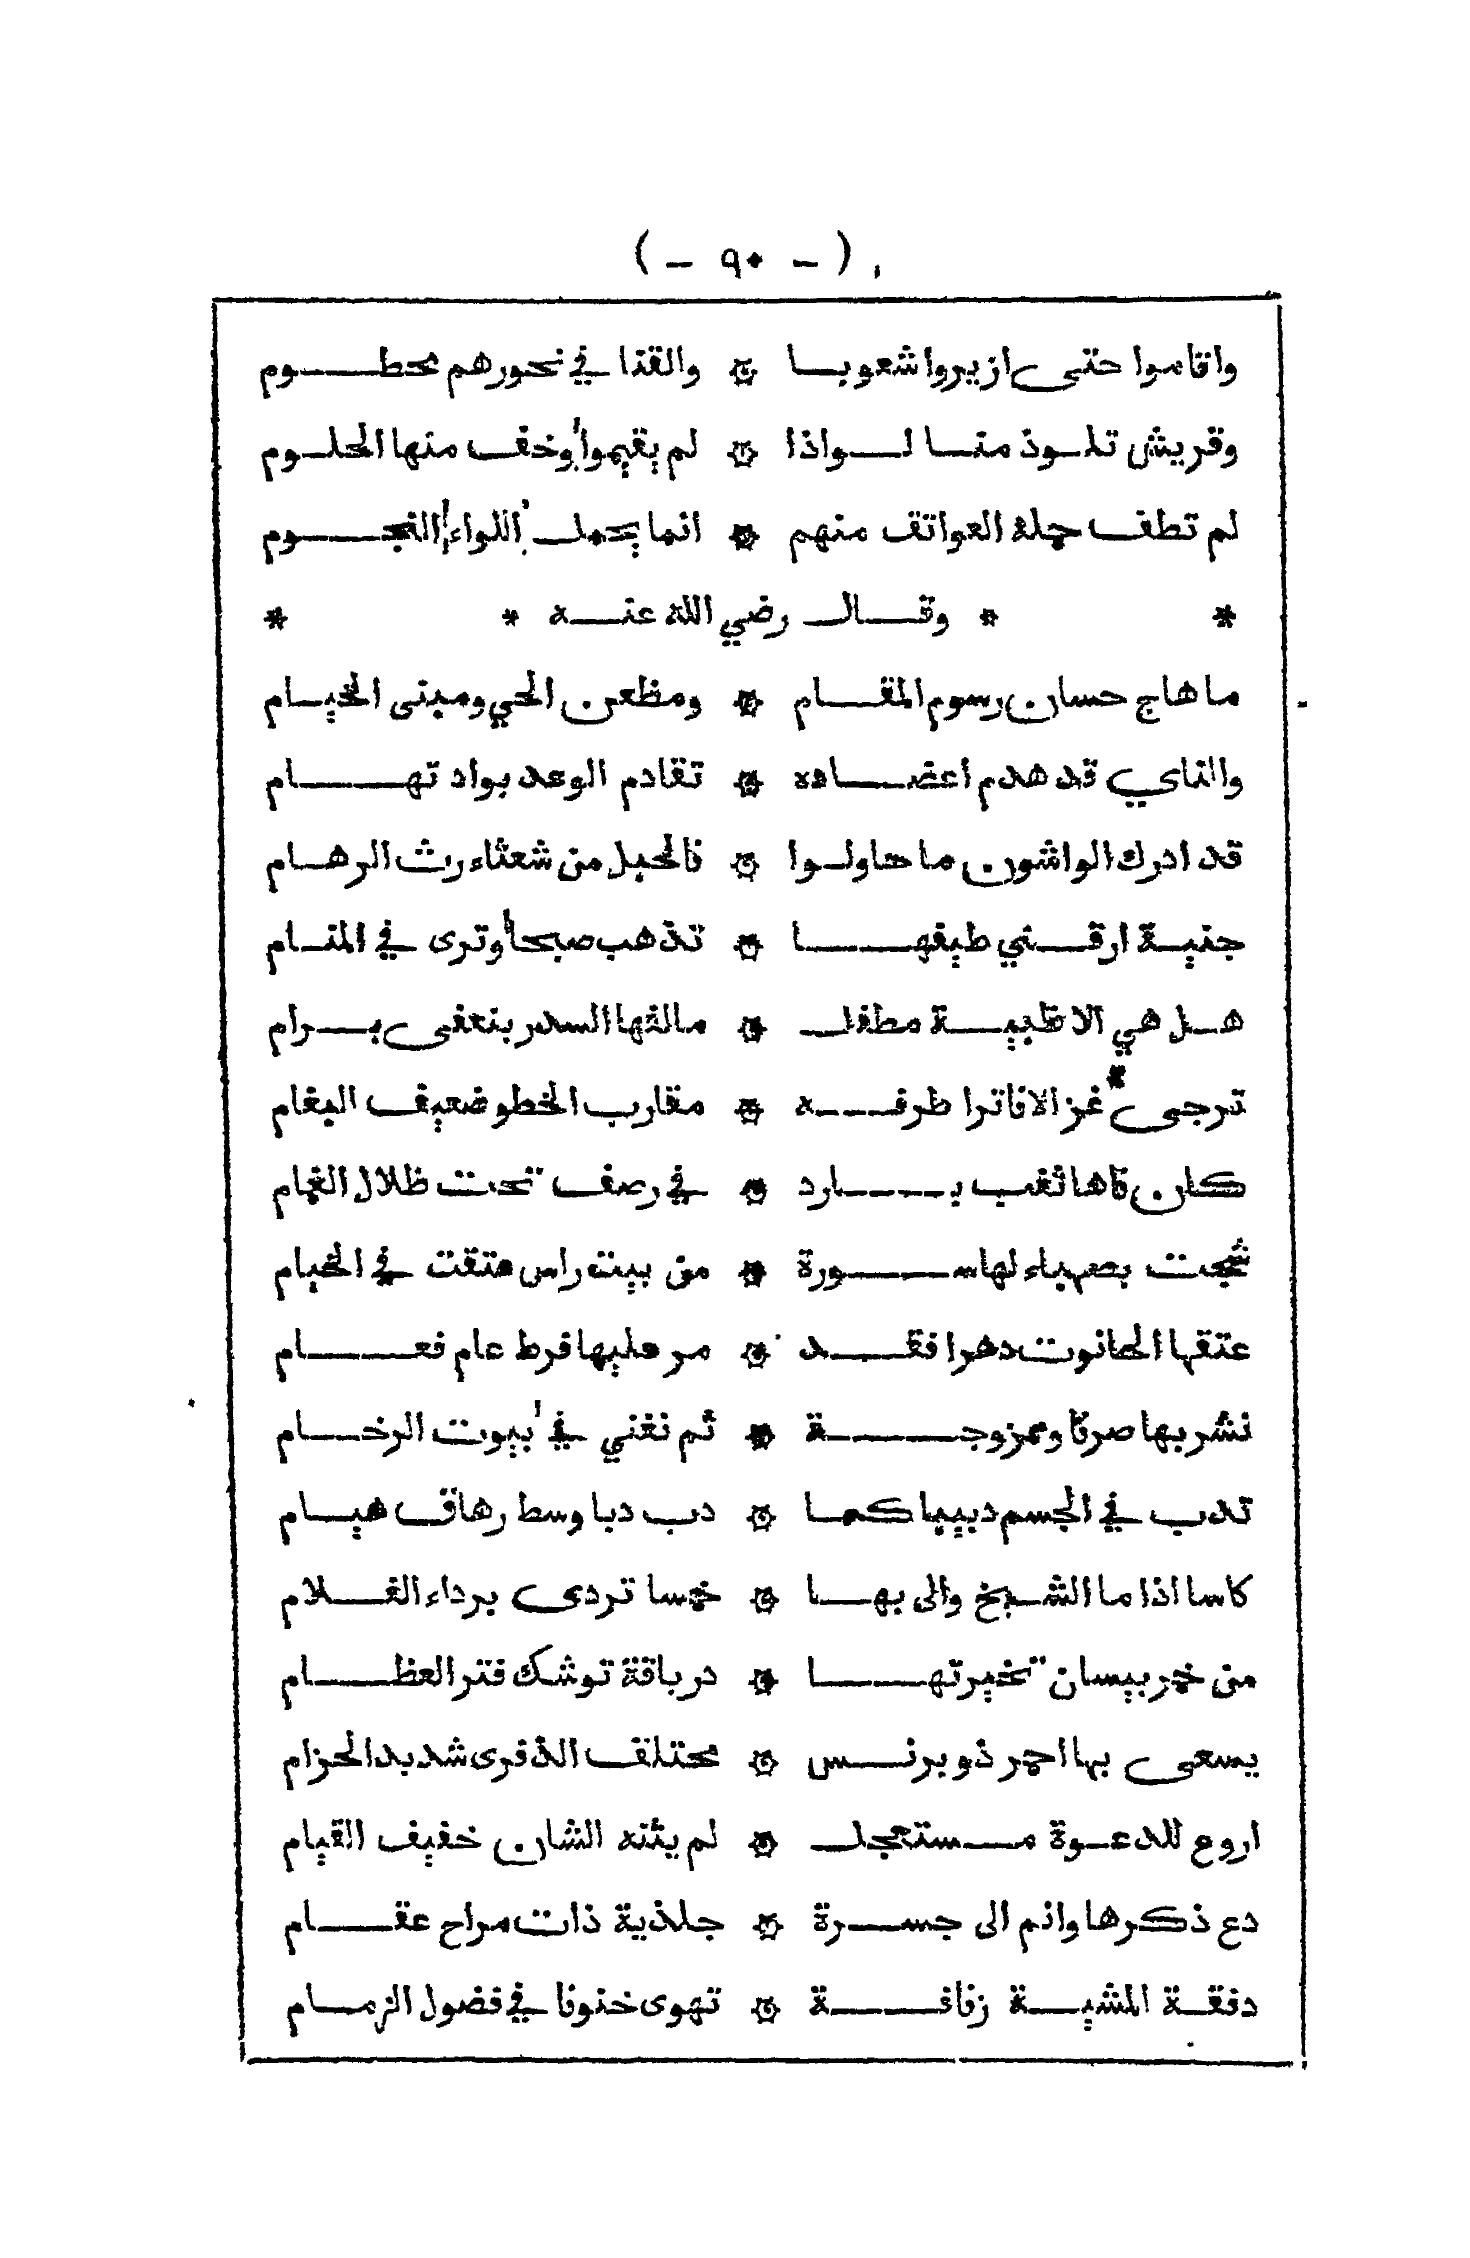 ( - ٩٠ - )
واقاموا حتى ازيروا شعوبا * والقنا في نحورهم محطوم
وقريش تلوذ منا لواذا * لم يقيموا وخف منها الحلوم
لم تطف حمله العواتق منهم * انما يحمل اللواء النجوم
* * وقال رضي الله عنه * *
ما هاج حسان رسوم المقام * ومظعن الحي ومبنى الخيام
والناي قد هدم اعضاده * تقادم العهد بواد تهام
قد ادرك الواشون ما حاولوا * فالحبل من شعثاء رث الرهام
جنية ارقني طيفها * تذهب صبحا وترى في المنام
هل هي الا ظبية مطفل * مالفها السدر بنعفى برام
ترجى غزالا فاترا طرفه * مقارب الخطو ضعيف البغام
كان فاها ثغب بارد * في رصف تحت ظلال الغمام
شجت بصهباء لها سورة * من بيت راس عتقت في الخيام
عتقها الحانوت دهرا فقد * مر عليها فرط عام فعام
نشربها صرفا وممزوجة * ثم نغني في بيوت الرخام
تدب في الجسم دبيبا كما * دب دبا وسط رهاق هيام
كاسا اذا ما الشيخ والى بها * خمسا تردى برداء الغلام
من خمر بيسان تخيرتها * درياقة توشك فتر العظام
يسعى بها احمر ذو برنس * مختلق الذفرى شديد الحزام
اروع للدعوة مستعجل * لم يثنه الشان خفيف القيام
دع ذكرها وانم الى جسرة * جلذية ذات مراح عقام
دفقة المشية زفافة * تهوى خنوفا في فضول الزمام